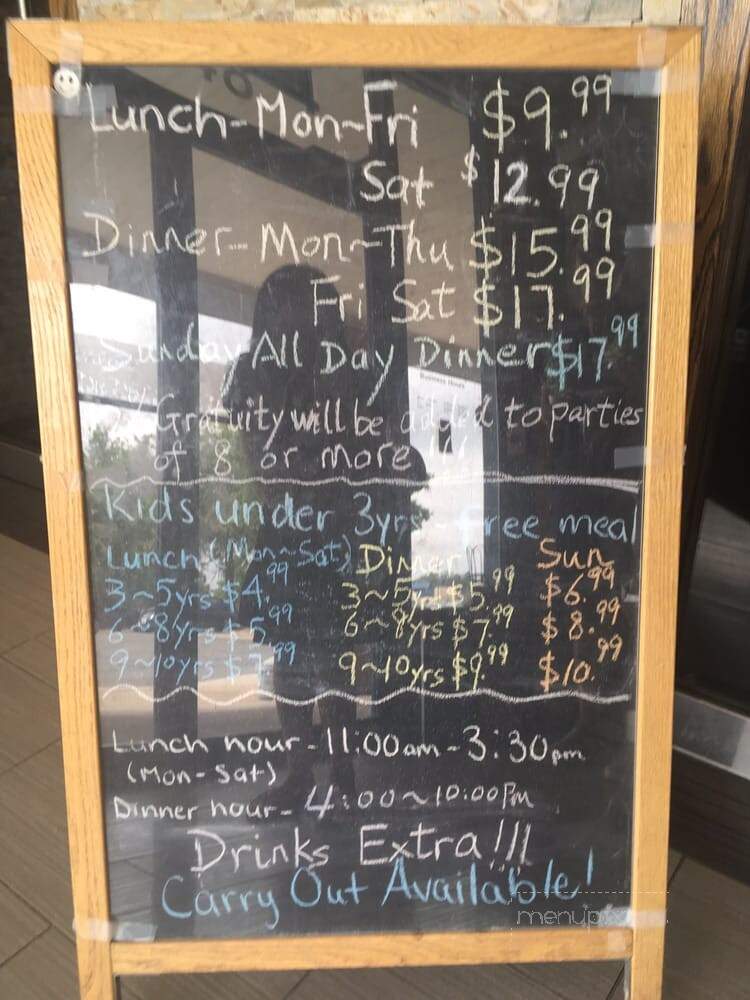 Lunch-Mon-Fri $9.99
Sat $12.99
Dinner-Mon~Thu $15.99
Fri Sat $17.99
Sunday All Day Dinner $17.99
% Gratuity will be added to parties
of 8 or more !!!
Kids under 3yrs - free meal
Lunch (Mon~Sat) Dinner Sun
3~5yrs $4.99 3~5yrs $5.99 $6.99
6~8yrs $5.99 6~8yrs $7.99 $8.99
9~10yrs $7.99 9~10yrs $9.99 $10.99
Lunch hour-11:00am-3:30pm
(Mon-Sat)
Dinner hour-4:00~10:00Pm
Drinks Extra!!!
Carry Out Available!
Business Hours